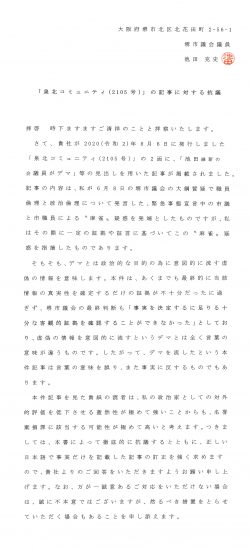 大阪府堺市北区北花田町2-56-1
堺市議会議員
池田 克史
「泉北コミュニティ(2105号)」の記事に対する抗議
拝啓 時下ますますご清祥のことと拝察いたします。
さて、貴社が2020(令和2)年8月6日に発行しました
「泉北コミュニティ(2105号)」の2面に、「池田維新の
会議員がデマ」等の見出しを用いた記事が掲載されました。
記事の内容は、私が6月8日の堺市議会の大綱質疑で職員
倫理と政治倫理について発言した、緊急事態宣言中の市議
と市職員による“麻雀”疑惑を発端としたものですが、私
はその際に一定の証拠や証言に基づいてこの“麻雀”疑
惑を指摘したものであります。
そもそも、デマとは政治的な目的の為に意図的に流す虚
偽の情報を意味します。本件は、あくまでも最終的に当該
情報の真実性を確定するだけの証拠が不十分だったに過
ぎず、堺市議会の最終判断も「事実を決定するに足りる十
分な客観的証拠を確認することができなかった」としてお
り、虚偽の情報を意図的に流すというデマとは全く言葉の
意味が違うものです。したがって、デマを流したという本
件記事は言葉の意味を誤り、また事実に反するものでもあ
ります。
本件記事を見た貴紙の読者は、私の政治家としての対外
的評価を低下させる蓋然性が極めて強いことからも、名誉
棄損罪に該当する可能性が極めて高いと考えます。つきま
しては、本書によって徹底的に抗議するとともに、正しい
日本語で事実だけを記載した記事の訂正を強く求めます
ので、貴社よりのご回答をいただきますようお願い申し上
げます。なお、万が一誠意あるご対応をいただけない場合
は、誠に不本意ではございますが、然るべき措置をとらせ
ていただく場合もあることを申し添えます。